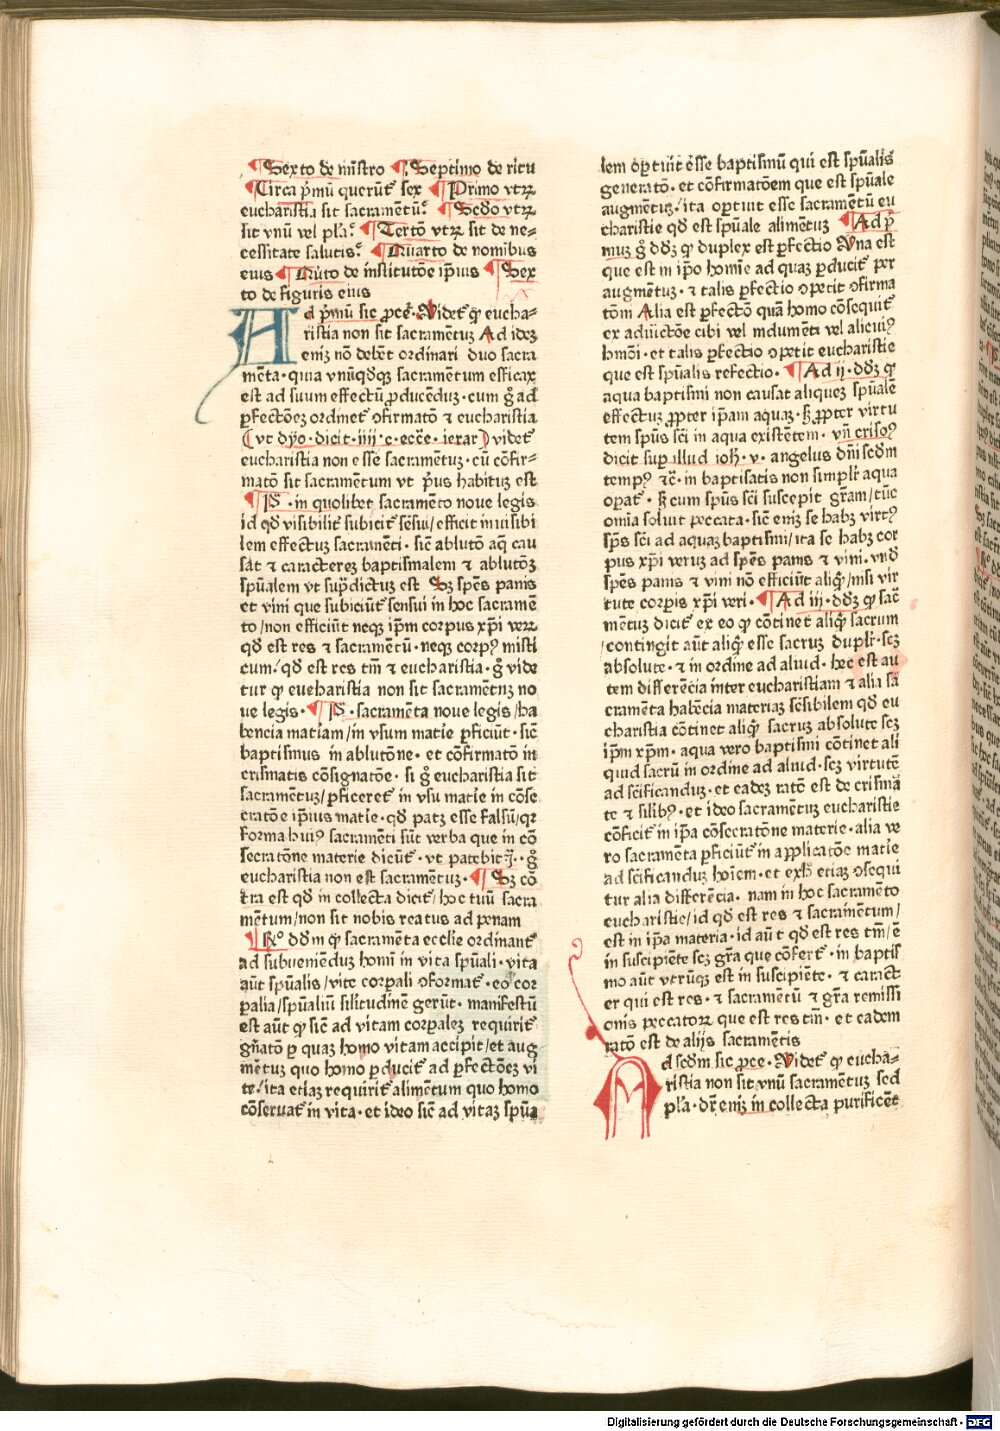 ¶Sexto de mīstro ¶Septimo de ritu
¶Circa p̄mū querūt᷑ sex ¶Primo vtrꝝ
eucharistia sit sacramētū? ¶Scd̄o vtrꝝ
sit vnū vel pl̄a? ¶Tertō vtrꝝ sit de ne⸗
cessitate salutis? ¶Quarto de nomibus
eius ¶Quīto de īnstitutōe ip̄ius ¶Sex
to de figuris eius
Ad p̄mū sic ꝓceđ. Videt᷑ ꝙ eucha⸗
ristia non sit sacramētuꝫ Ad ideꝫ
eniꝫ nō debēt ordinari duo sacra
mēta· quia vnūqd̄qꝫ sacramētum efficax
est ad suum effectū ꝓducēduꝫ· cum g̊ ad
ꝑfectōeꝫ ordinet᷑ ꝯfirmatō ⁊ eucharistia
(vt dyo· dicit· iiii· c· ecc̄e· ierar) videt᷑
eucharistia non esse sacramētuꝫ· cū cōfir⸗
matō sit sacramētum vt p̄us habituꝫ est
¶P̄· in quolibet sacramēto noue legis
id qd̄ visibilit᷑ subicit᷑ sēsui/ efficit inuisibi
lem effectuꝫ sacramēti· sic̄ ablutō aq̄ cau
sat ⁊ caractereꝫ baptismalem ⁊ ablutōꝫ
spūalem vt sup̄dictuꝫ est Sꝫ sp̄es panis
et vini que subiciūt᷑ sensui in hoc sacramē
to/ non efficiūt neqꝫ ip̄m corpus xp̄i verꝝ
qd̄ est res ⁊ sacramētū· neqꝫ corpꝰ misti
cum/ qd̄ est res tm̄ ⁊ eucharistia· g̊ vide
tur ꝙ eucharistia non sit sacramētuꝫ no
ue legis· ¶P̄· sacramēta noue legis/ ha
bencia matiam/ in vsum matie ꝑficiūt᷑· sic̄
baptismus in ablutōne· et cōfirmatō in
crismatis cōsignatōe· si g̊ eucharistia sit
sacramētuꝫ/ ꝑficeret᷑ in vsu matie in cōse
cratōe ip̄ius matie· qd̄ patꝫ esse falsū/ qꝛ
forma huiꝰ sacramēti sūt verba que in cō
secratōne materie dicūt᷑· vt patebit j̄· g̊
eucharistia non est sacramētuꝫ· ¶Sꝫ cō
tra est qd̄ in collecta dicit᷑/ hoc tuū sacra
mētum/ non sit nobis reatus ad penam
¶R̄º dd̄m ꝙ sacramēta ecclie ordinant᷑
ad subueniēduꝫ homī in vita spūali· vita
aūt spūalis/ vite corꝑali ꝯformat᷑· eo ꝙ cor
ꝑalia/ spūaliū sil̄itudinē gerūt· manifestū
est aūt ꝙ sic̄ ad vitam corꝑaleꝫ requirit᷑
gn̄atō ꝑ quaꝫ homo vitam accipit/ et aug
mētuꝫ quo homo ꝑducit᷑ ad ꝑfectōeꝫ vi
te/ ita etiaꝫ requirit᷑ alimētum quo homo
cōseruat᷑ in vita· et ideo sic̄ ad vitaꝫ spūa
lem oꝑtuit esse baptismū qui est spūalis
generatō· et cōfirmatōem que est spūale
augmētuꝫ/ ita oꝑtuit esse sacramētū eu
charistie qd̄ est spūale alimētuꝫ ¶Ad p̄
muꝫ g̊ dd̄ꝫ ꝙ duplex est ꝑfectio Vna est
que est in ip̄o homīe ad quaꝫ ꝑducit᷑ per
augmētuꝫ· ⁊ talis ꝑfectio ꝯpetit ꝯfirma
tōni Alia est ꝑfectō quā homo cōsequit᷑
ex adiūctōe cibi vel indumēti vel alicuiꝰ
hmōi· et talis ꝑfectio ꝯpetit eucharistie
que est spūalis refectio· ¶Ad ii· dd̄ꝫ ꝙ
aqua baptismi non causat aliqueꝫ spūalē
effectuꝫ ꝓpter ip̄am aquaꝫ· sꝫ ꝓpter virtu
tem spūs sc̄i in aqua existētem· vn̄ crisoꝰ
dicit sup illud ioħ· v· angelus dn̄i scd̄m
tempꝰ ⁊c̄· in baptisatis non simpl̄r aqua
oꝑat᷑· sꝫ cum spūs sc̄i suscepit gr̄am/ tūc
omīa soluit peccata· sic̄ eniꝫ se habꝫ virtꝰ
sp̄s sc̄i ad aquaꝫ baptismi/ ita se habꝫ cor
pus xp̄i veruꝫ ad sp̄es panis ⁊ vini· vnd̄
sp̄es panis ⁊ vini nō efficiūt aliqd̄/ nisi vir
tute corꝑis xp̄i veri· ¶Ad iii· dd̄ꝫ ꝙ sac̄
mētuꝫ dicit᷑ ex eo ꝙ cōtinet aliqd̄ sacrum
/contingit aūt aliqd̄ esse sacruꝫ dupl̄r· scꝫ
absolute· ⁊ in ordine ad aliud· hec est au
tem differēcia inter eucharistiam ⁊ alia sa
cramēta habēcia materiaꝫ sēsibilem qd̄ eu
charistia cōtinet aliqd̄ sacruꝫ absolute scꝫ
ip̄m xp̄m· aqua vero baptismi cōtinet ali
quid sacrū in ordine ad aliud· scꝫ virtutē
ad sc̄ificanduꝫ· et eadeꝫ ratō est de crismā
te ⁊ sil̄ibꝰ· et ideo sacramētuꝫ eucharistie
cōficit᷑ in ip̄a cōsecratōne materie· alia ve
ro sacramēta ꝑficiūt᷑ in applicatōe matie
ad sc̄ificanduꝫ hoīem· et exħ etiaꝫ ꝯsequi
tur alia differēcia· nam in hoc sacramēto
eucharistie/ id qd̄ est res ⁊ sacramētum/
est in ip̄a materia· id aūt qd̄ est res tm̄/ ē
in suscipiēte scꝫ gr̄a que cōfert᷑· in baptis
mo aūt vtrūqꝫ est in suscipiēte· ⁊ caract
er qui est res· ⁊ sacramētū ⁊ gr̄a remissi
onis peccatorꝝ que est res tm̄· et eadem
ratō est de alijs sacramētis
Ad scd̄m sic ꝓce· Videt᷑ ꝙ eucha⸗
ristia non sit vnū sacramētuꝫ sed
pl̄a· dr̄ eniꝫ in collecta purificēt
Digitalisierung gefördert durch die Deutsche Forschungsgemeinschaft - DFG